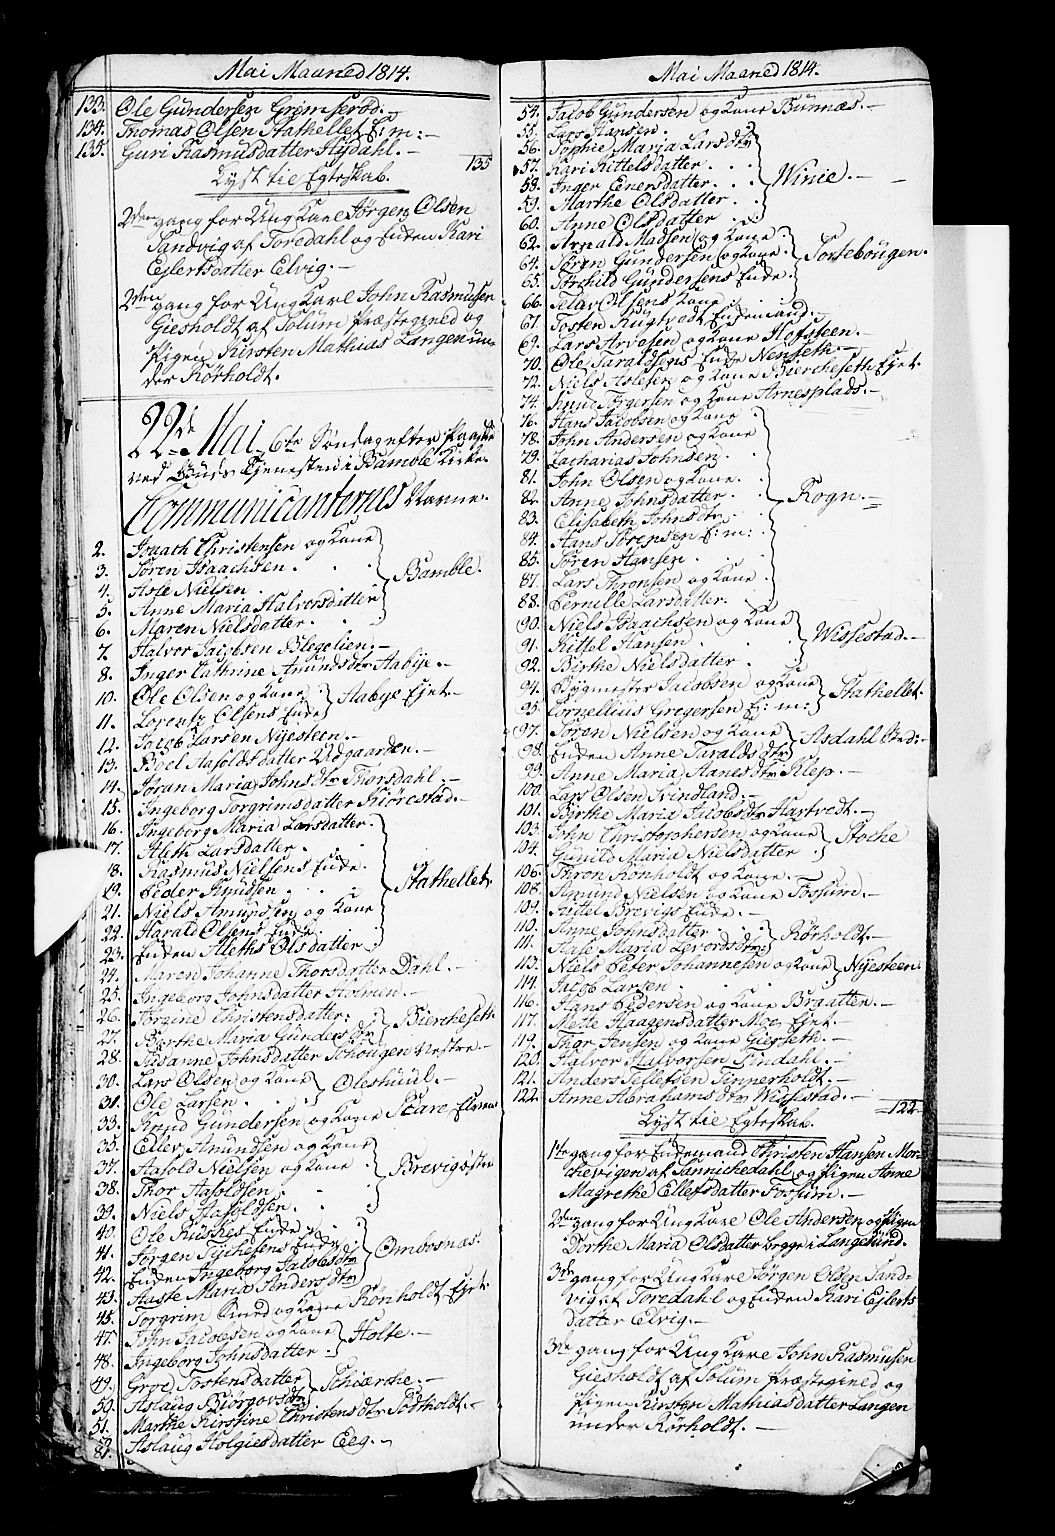 Mai Maaned 1814.
133. Ole Gundersen Grimserød.
134. Thomas Olsen Stathellet E: m: –
135. Guri Rasmusdatter Hydahl. –
135
Lyst til Egteskab.
2den gang for Ung Karl Jørgen Olsen
Sandvig af Toredahl og Enken Kari
Ejlertsdatter Elvig. –
2den gang for Ung Karl John Rasmusen
Giesholdt af Solum Præstegield og
Pigen Kirsten Mathias Langen un-
der Rørholdt.
22de Mai 6te Søndag efter Paaske
ved Guds Tjeneste i Bamble Kirke
Communicanternes Navne.
2. Isaach Christensen og Kone
3. Søren Isaachsen
4. Asle Nielsen Bamble.
5. Anne Maria Halvorsdatter
6. Maren Nielsdatter
7. Halvor Jacobsen Blegelien –
8. Inger Cathrine Amundsdtr Aabye. –
10. Ole Olsen og Kone Aabye Ejet –
11. Lorentz Olsens Enke
12. Jacob Larsen Nyesteen. –
13. Boel Aasoldsdatter Udgaarden. –
14. Jøran Maria Johnsdtr Thorsdahl. –
15. Ingeborg Torgrimsdatter Kiørestad. –
16. Ingeborg Maria Larsdatter
17. Aleth Larsdatter
18. Rasmus Nielsens Enke
19. Peder Knudsen Stathellet.
21. Niels Amundsen og Kone
22. Harald Olsens Enke
23. Enken Aleths Olsdatter
24. Maren Johanne Thorsdatter Dahl. –
25. Ingeborg Johnsdatter Holmen. –
26. Jørgine Christensdatter
27. Birthe Maria Gundersdtr Bierchesett.
28. Susanne Johnsdatter Schougen Vestre. –
30. Lars Olsen og Kone Oleshuul. –
31. Ole Larsen
33. Knud Gundersen og Kone Skare
35. Ellev Amundsen og Kone
37. Aasold Nielsen og Kone
38. Thor Aasoldsen Brevigs
39. Niels Aasoldsen
40. Ole Enke
41. Jørgen Enke
42. Enken Ingeborg Jacobsdtr Ombosnæs.
43. Aaste Maria Andersdtr
45. Torgrim Smed og Kone Rønholdt Ejet.
47. John Jacobsen og Kone Holte. –
48. Ingeborg Johnsdatter
49. Groe Tostensdatter Schiærche. –
50. Aslaug Biørgovsdtr
51. Marthe Kirstine Christensdtr Rødholdt. –
Aslaug Holgiesdatter Eeg. –
Mai Maaned 1814.
54. Jacob Gundersen og Kone Bunnæs. –
55. Lars Hansen.
56. Sophie Maria Larsdtr
57. Kari Kittelsdatter
58. Inger Enersdatter Winie. –
59. Marthe Olsdatter
60. Anne Olsdatter
62. Arnald Madsen og Kone
64. Søren Gundersen og Kone Tortebougen.
65. Torchild Gundersens Enke
66. Telav Olsens Kone
67. Tosten Rugtvedt Enkemand. –
69. Lars Arvesen og Kone Hofsteen. –
70. Ole Taraldsens Enke Nenseth. –
72. Niels Aslesen og Kone Biercheseth Ejet.
74. Knud Jørgersen og Kone Arnesplads. –
76. Hans Jacobsen og Kone
78. John Andersen og Kone
79. Zacharias Johnsen
81. John Olsen og Kone
82. Anne Johnsdatter Rogn. –
83. Elisabeth Johnsdtr
84. Hans Sørensen E: m:
85. Søren Hansen
87. Lars Thronsen og Kone
88. Pernille Larsdatter
90. Niels Isaachsen og Kone
91. Kittel Hansen Wissestad. –
92. Birthe Nielsdatter
94. Bygmester Jacobsen og Kone Stathellet.
95. Cornellius Gregersen E: m:
97. Søren Nielsen og Kone Asdahl
98. Enken Anne Taraldsdtr
99. Anne Maria Aanesdtr Klep. –
100. Lars Olsen Findland. –
101. Byrthe Maria Jacobsdtr Hartvedt. –
103. John Christophersen og Kone Stoche
104. Gunild Maria Nielsdatter
106. Thron Rønholdt og Kone. –
108. Amund Nielsen og Kone Fossum. –
109. Kittel Brevigs Enke. –
110. Anne Johnsdatter Rørholdt. –
111. Aase Maria Levordsdtr
113. Niels Peter Johannesen og Kone Nyesteen.
114. Jacob Larsen
116. Hans Pedersen og Kone Bryatten. –
117. Mette Haagensdatter Moe Ejet. –
119. Thor Jensen og Kone Gierseth. –
120. Halvor Halvorsen Findahl. –
121. Anders Tellefsen Tinnerholdt. –
122. Anne Abrahamsdtr Wissestad. –
122
Lyst til Egteskab.
1te gang for Enkemand Christen Hansen Mor-
chevigen af Sannichedahl og Pigen Anne
Magrethe Ellefsdatter Fossum. –
2den gang for Ung Karl Ole Andersen og Pigen
Dorthe Maria Olsdatter begge i Langesund.
3de gang for Ung Karl Jørgen Olsen Sand-
vig af Toredahl og Enken Kari Ejlerts
datter Elvig. –
3de gang for Ung Karl John Rasmusen
Giesholdt af Solum Præstegield og
Pigen Kirsten Mathiasdatter Langen
under Rørholdt. –